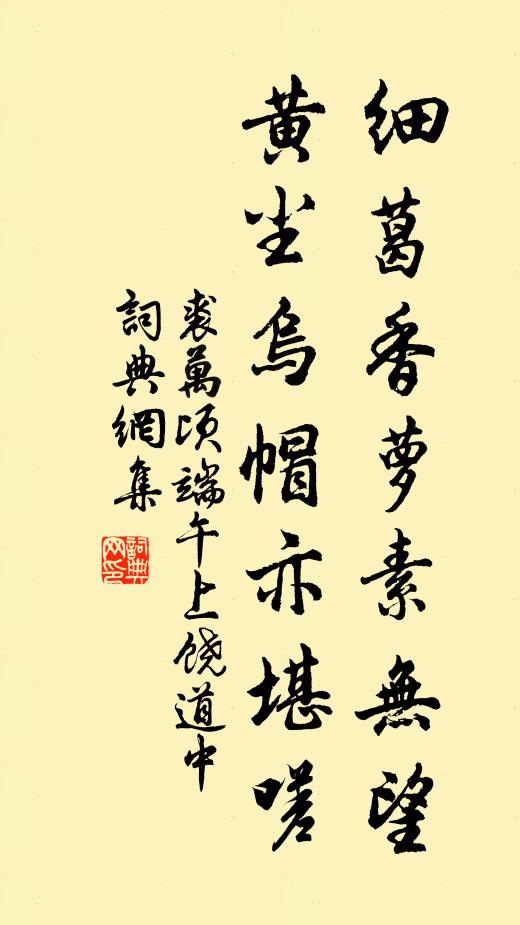 細葛香萝素無望
黄尘烏帽亦堪嗟
裘萬顷端午上饒道中
詞典網集
詞典网印